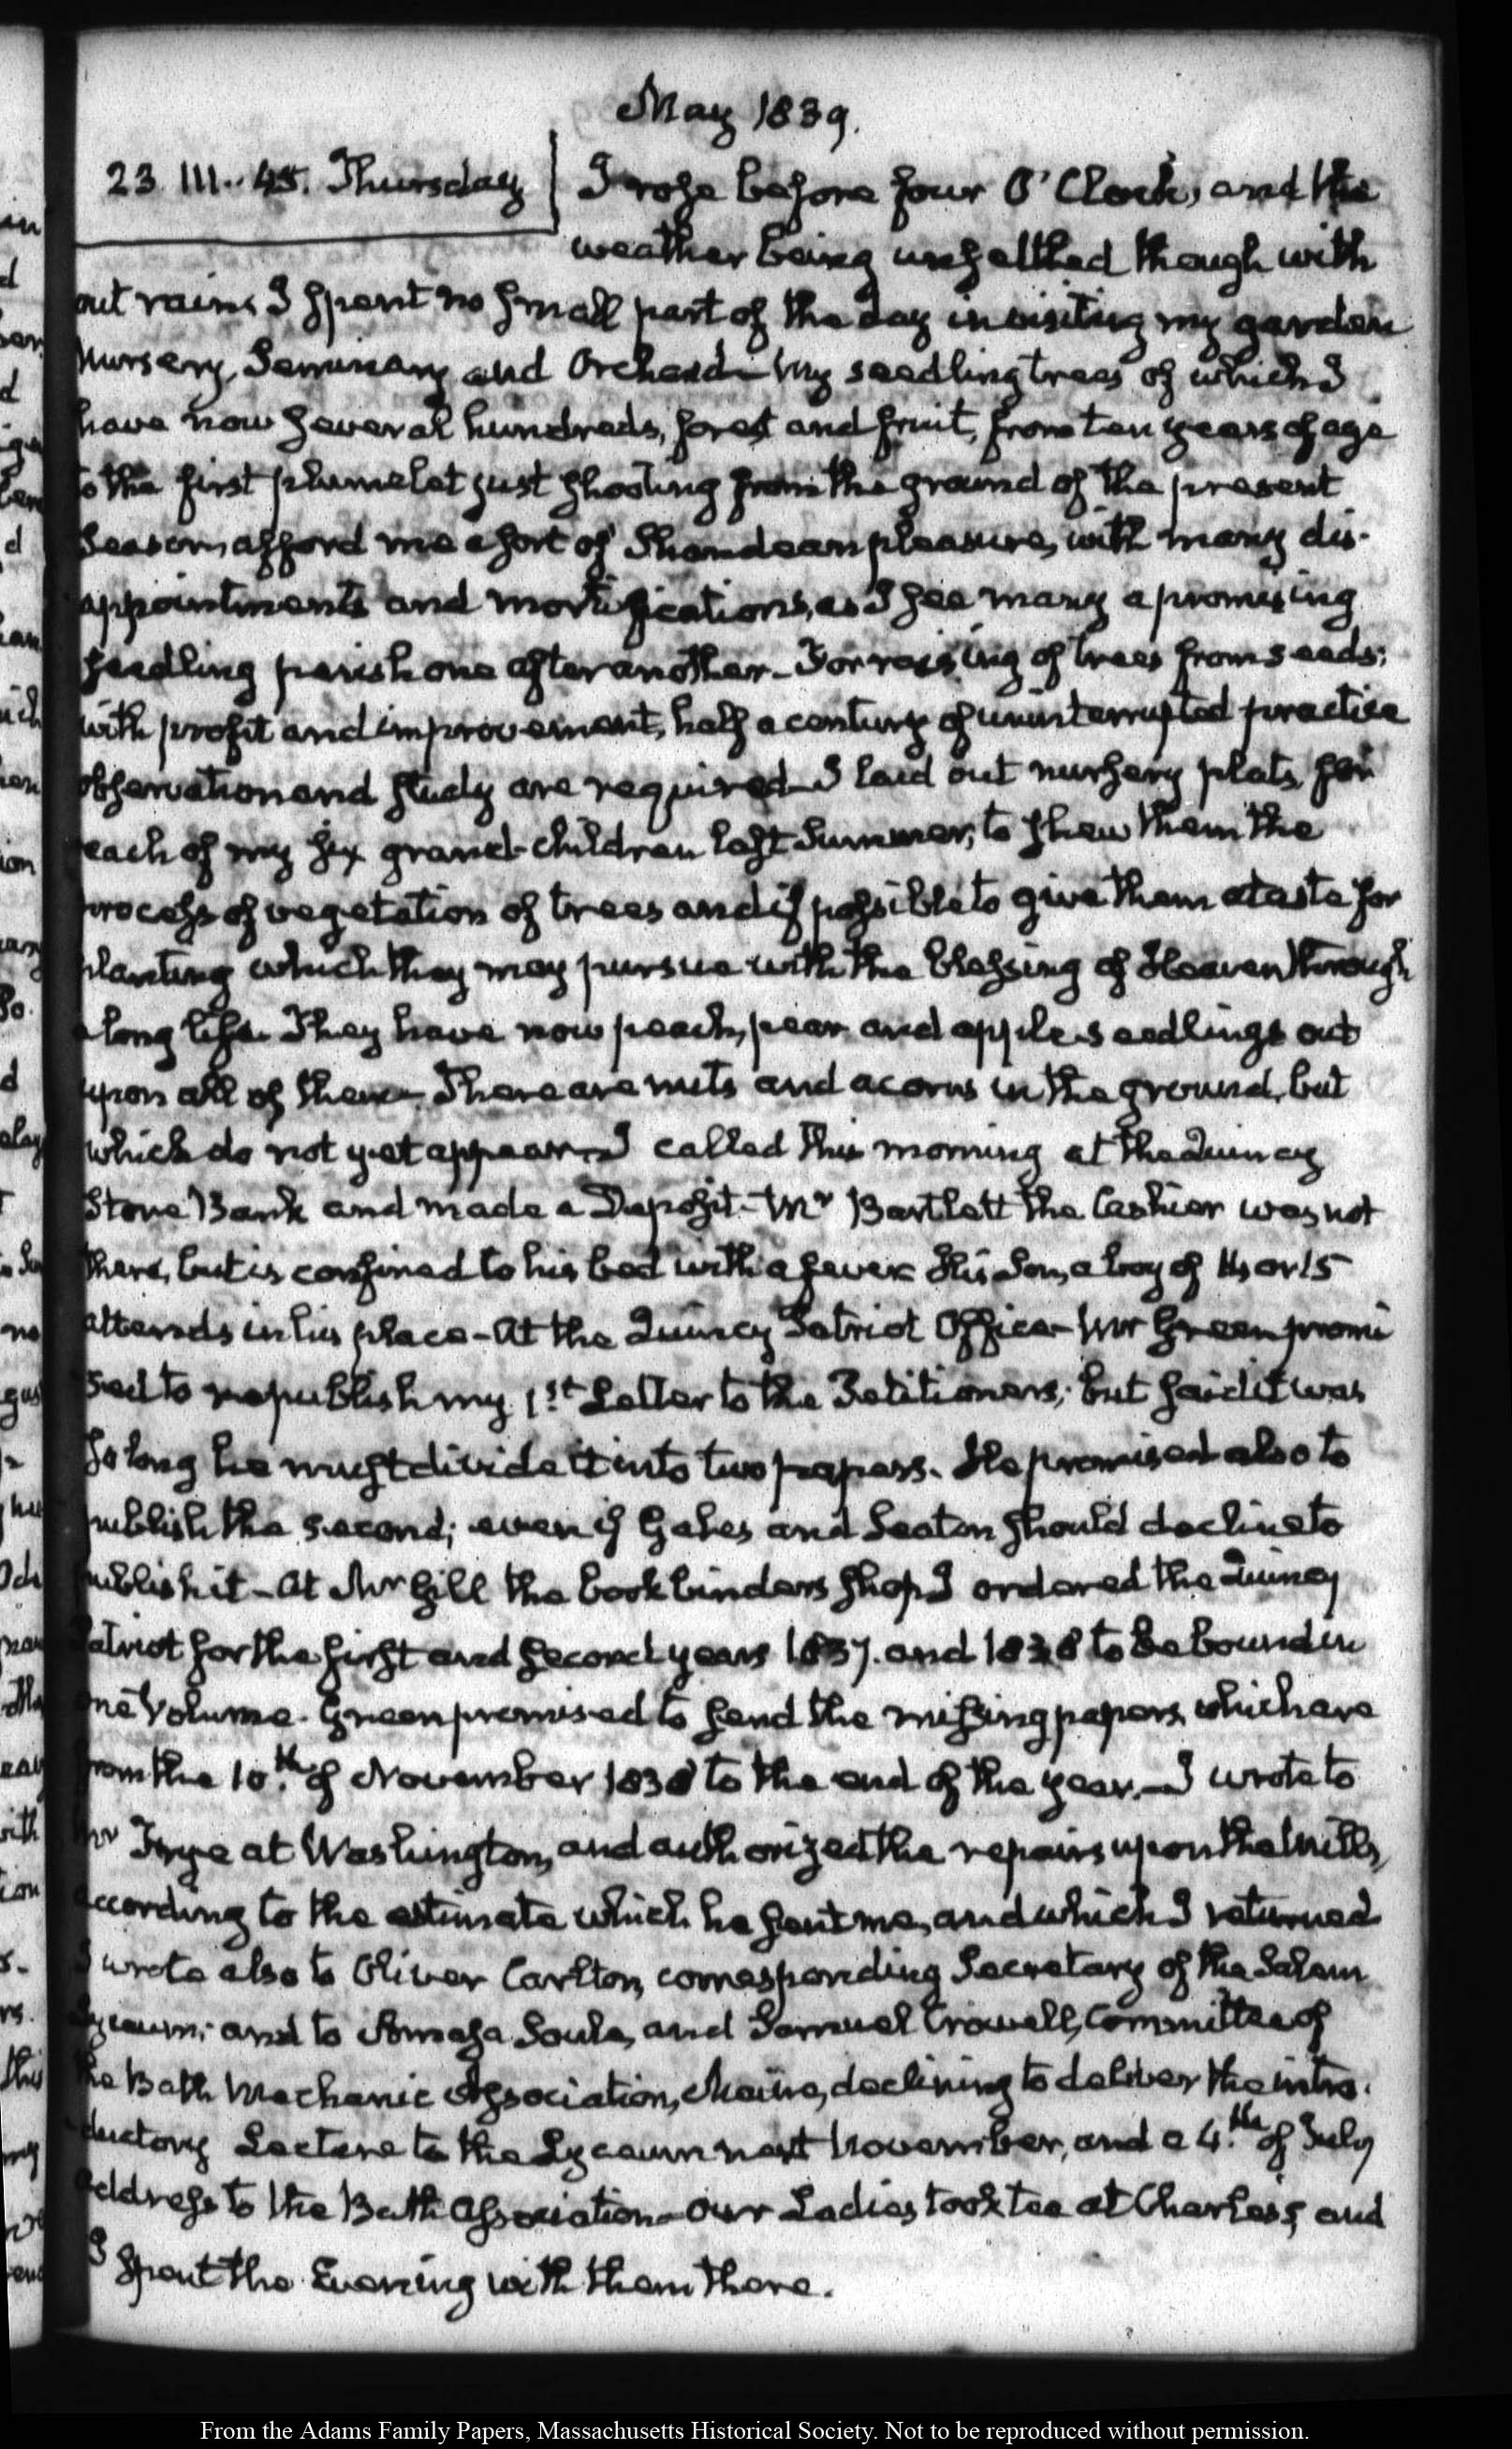 May 1839.
23. III..45. Thursday
I rose before four O'Clock, and the
weather being unsettled though with
out rain, I spent no small part of the day in visiting my garden
Nursery, Seminary and Orchard— My seedling trees of which I
have now several hundreds, forest and fruit, from ten years of age
to the first plumelet just shooting from the ground of the present
Season, afford me a sort of Shandean pleasure, with many dis-
appointments and mortifications, as I see many a promising
seedling perish one after another— For raising of trees from seeds;
with profit and improvement, half a century of uninterrupted practice
observation and study are required— I laid out nursery plats, for
each of my six grand-children last Summer, to shew them the
process of vegetation of trees and if possible to give them a taste for
planting which they may pursue with the blessing of Heaven through
a long life. They have now peach, pear and apple seedlings out
upon all of them— There are nuts and acorns in the ground, but
which do not yet appear— I called this morning at the Quincy
Stone Bank and made a Deposit— Mr Bartlett the Cashier was not
there, but is confined to his bed with a fever His Son, a boy of 14 or 15
attends in his place— At the Quincy Patriot Office— Mr Green promi
sed to republish my 1st Letter to the Petitioners; but said it was
so long he must divide it into two papers. He promised also to
publish the second; even if Gales and Seaton should decline to
publish it— At Mr Gill the bookbinders shop I ordered the Quincy
Patriot for the first and second years 1837. and 1838 to be bound in
one Volume. Green promised to send the missing papers, which are
from the 10th of November 1838 to the end of the year.— I wrote to
Mr Frye at Washington, and authorized the repairs upon the Mills,
according to the estimate which he sent me, and which I returned
I wrote also to Oliver Carlton, corresponding Secretary of the Salem
Lyceum; and to Amasa Soule, and Samuel Crowell, Committee of
the Bath Mechanic Association, Maine, declining to deliver the intro-
ductory Lecture to the Lyceum next November, and a 4th of July
Address to the Bath Association— Our Ladies took tea at Charles's, and
I spent the Evening with them there.
From the Adams Family Papers, Massachusetts Historical Society. Not to be reproduced without permission.